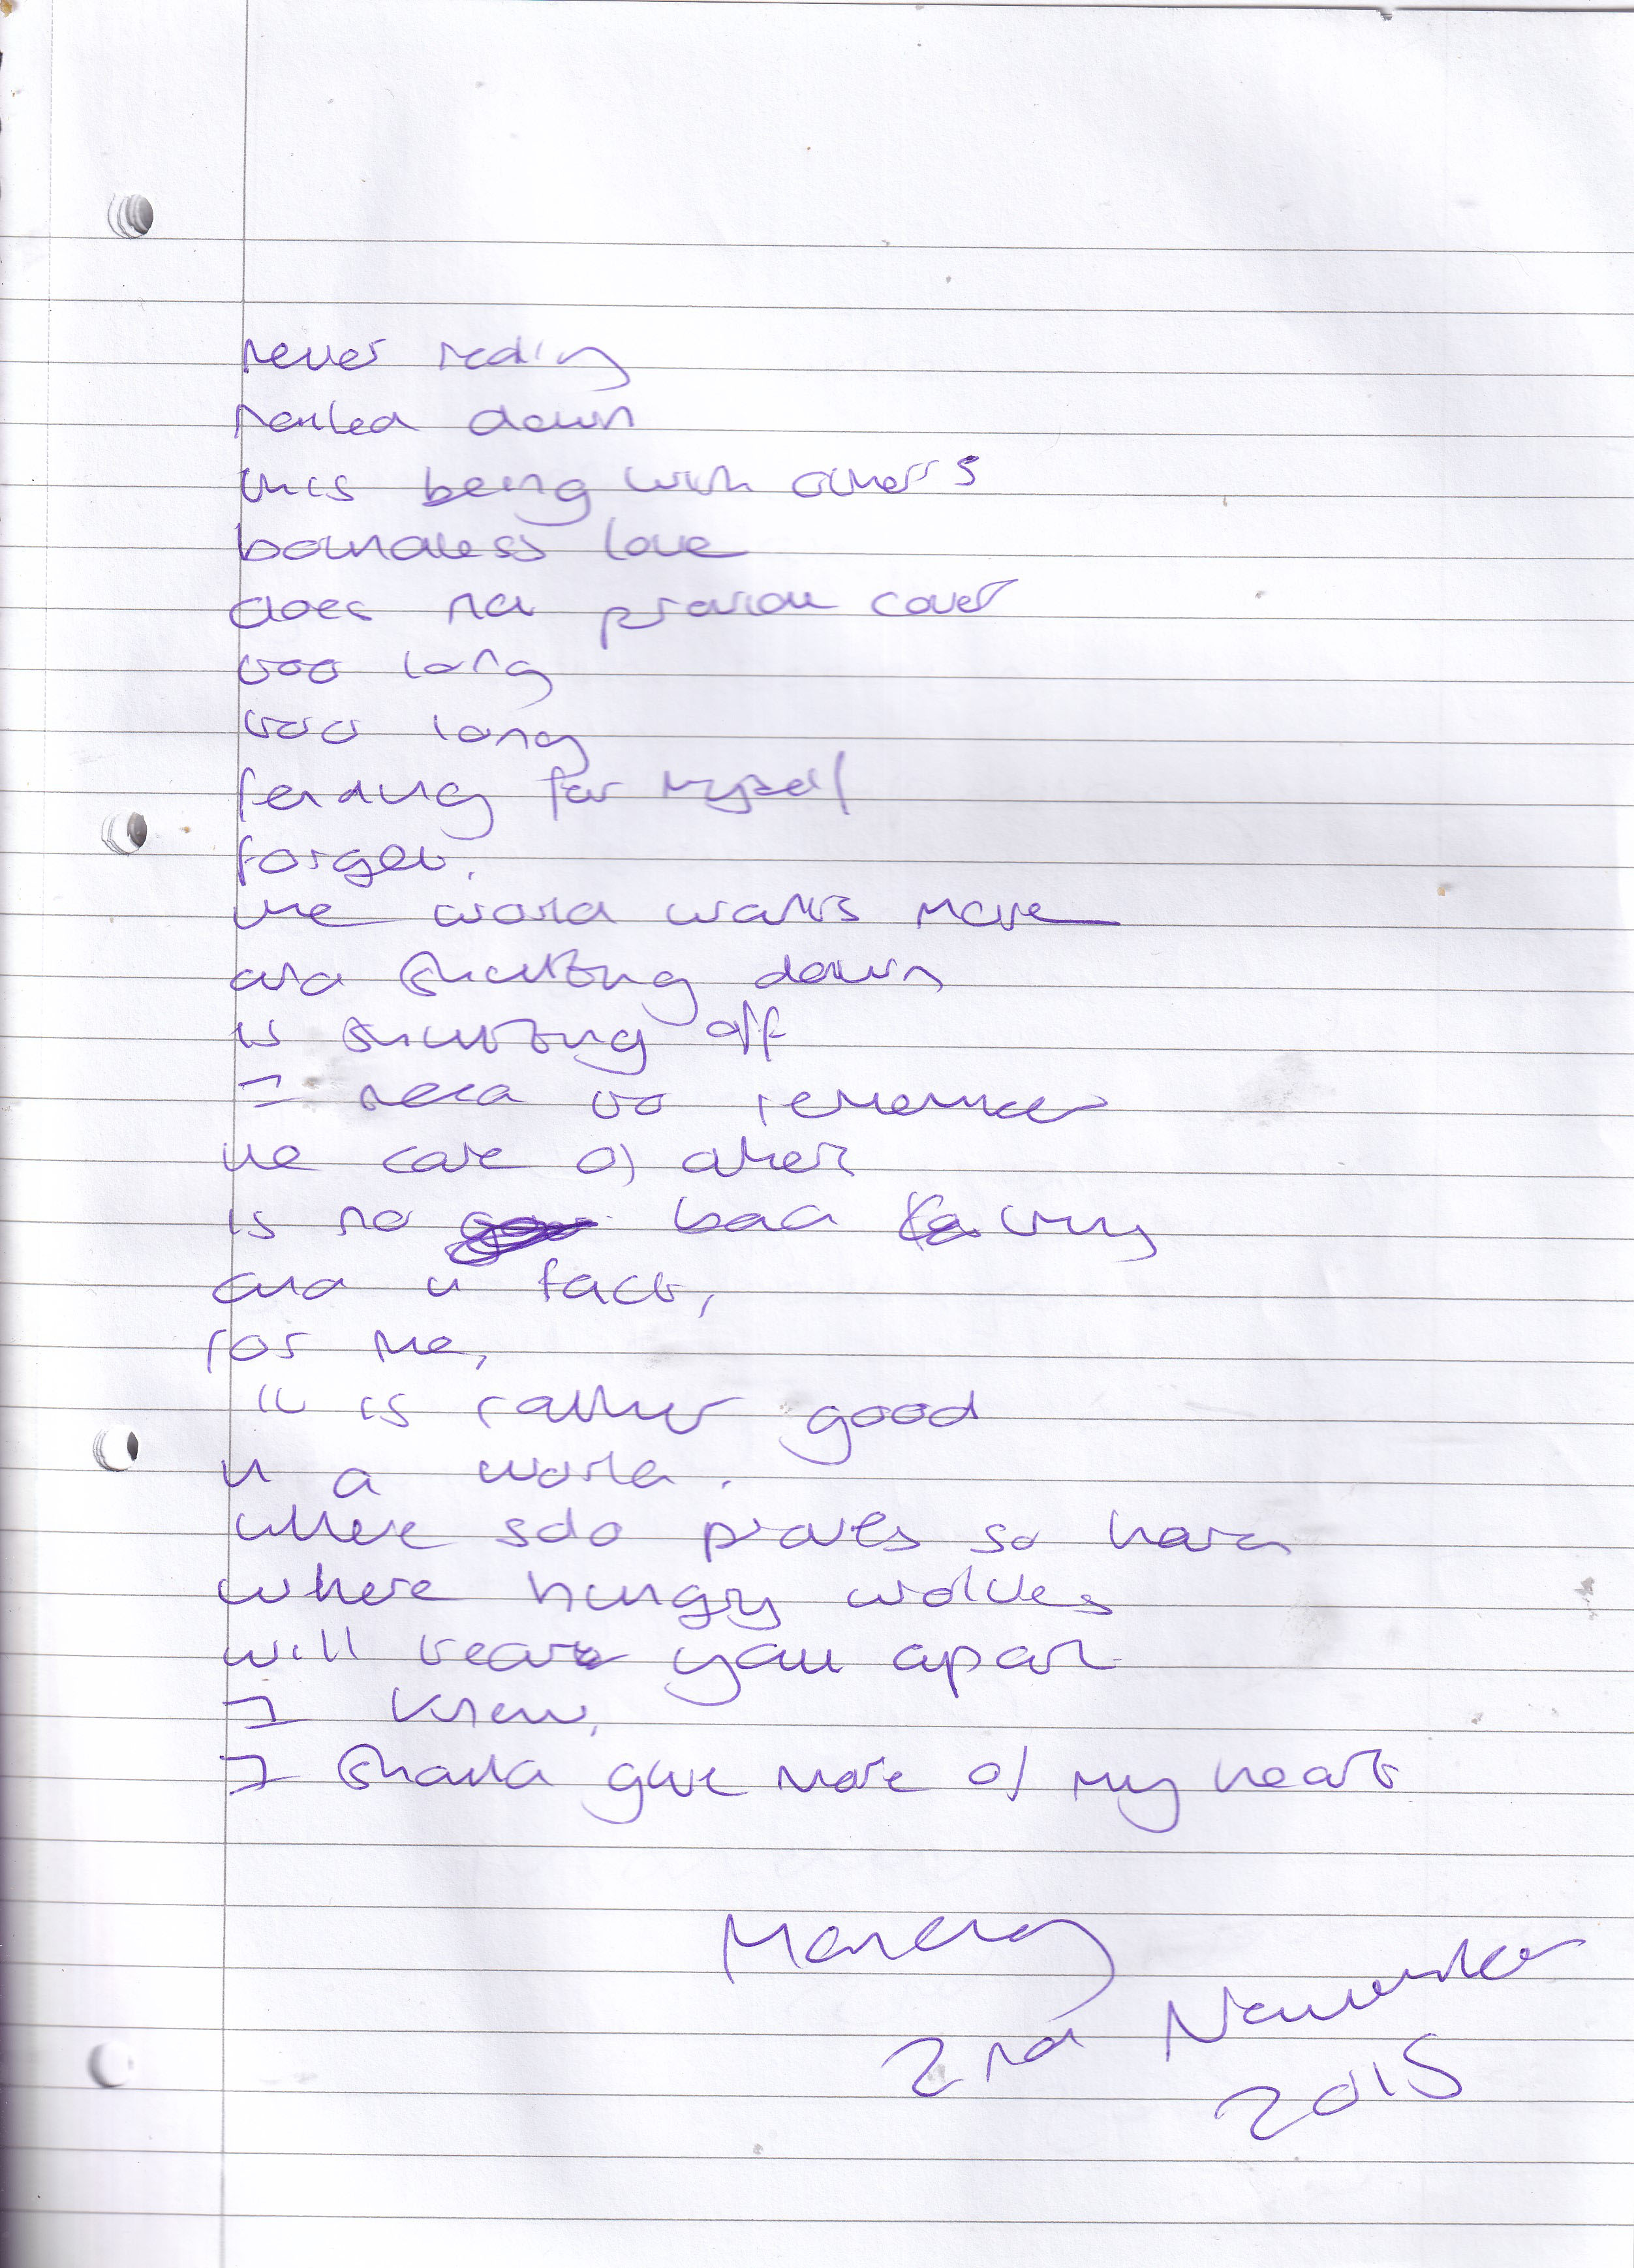 never really
nailed down
this being with others
boundless love
does not provide cover
too long
too long
fending for myself
forget,
the world wants more
and shutting down
is shutting off
I need to remember
the care of others
is no bad thing
and in fact,
for me,
it is rather good
in a world,
where solo proves so hard
where hungry wolves
will tear you apart
I know,
I should give more of my heart
Monday
2nd November
2015